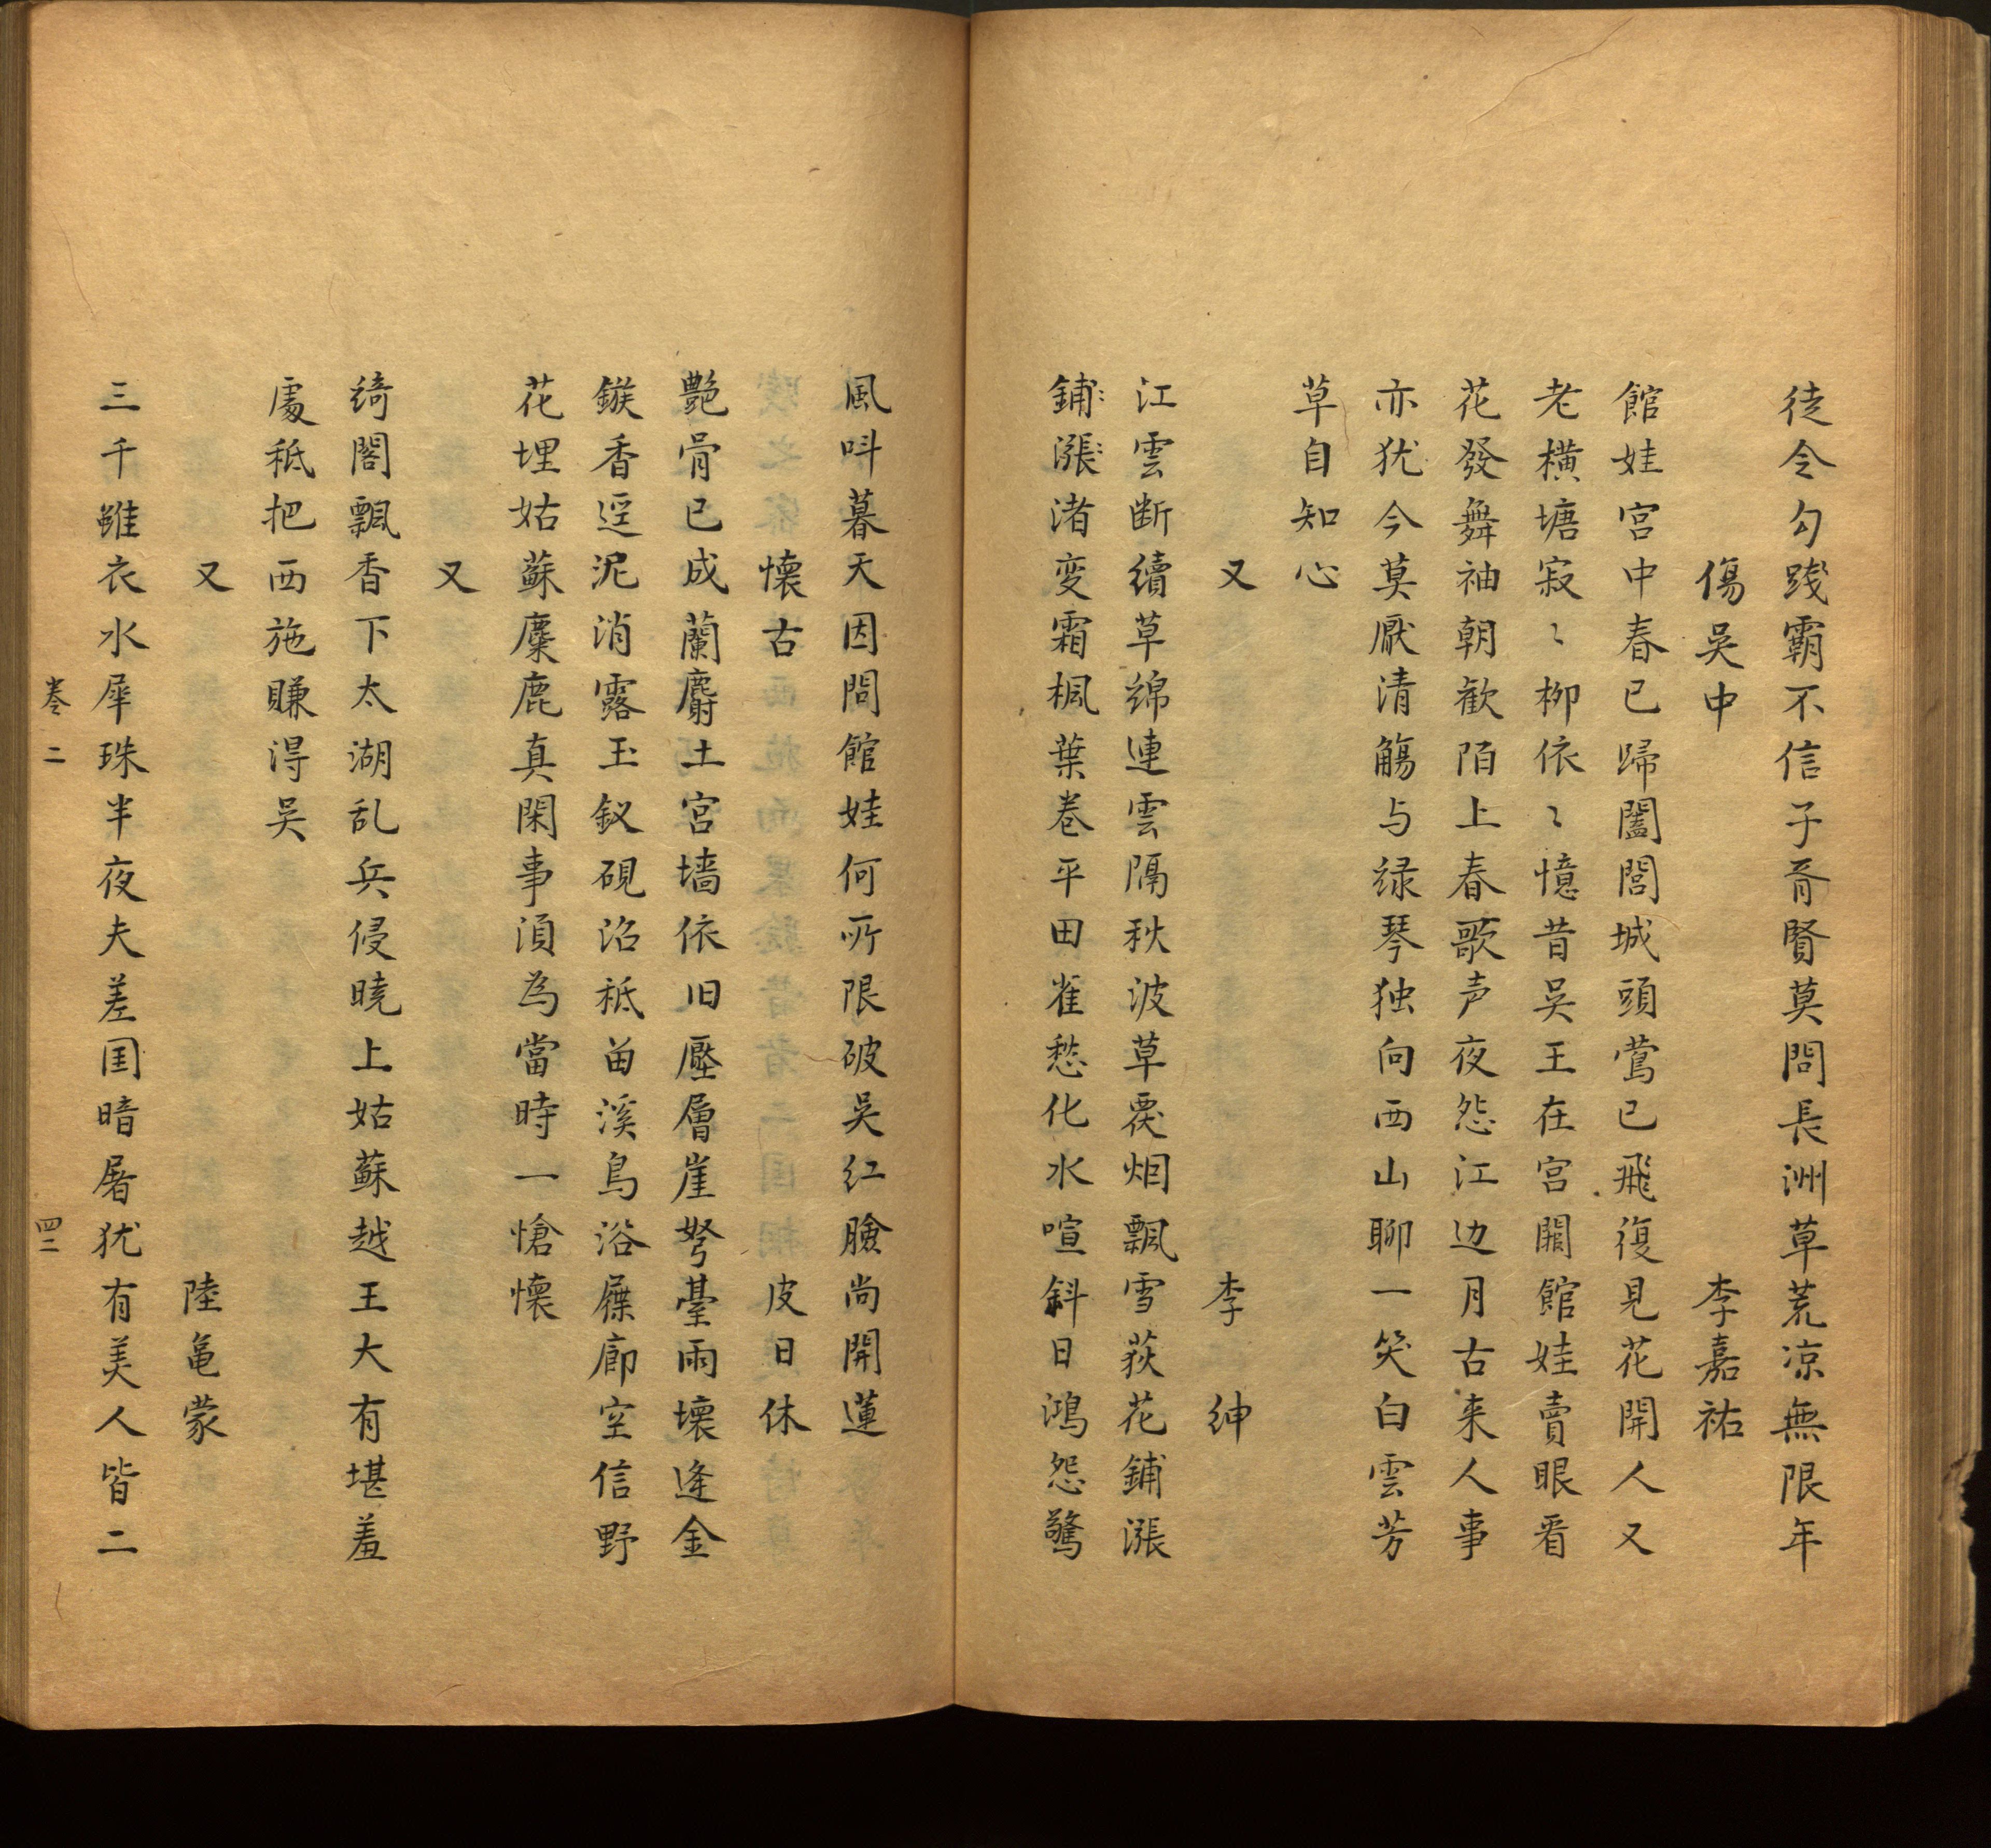 徒令勾踐霸不信子胥賢莫問長洲草荒凉無限年
傷吳中　李嘉祐
館娃宫中春已歸闔閭城頭鶯已飛復見花開人又
老横塘寂〻柳依〻憶昔吳王在宫闕館娃賣眼看
花發舞袖朝歡陌上春歌声夜怨江边月古来人事
亦犹今莫厭清觴与緑琴独向西山聊一笑白雲芳
草自知心
又　李紳
江雲断續草綿連雲隔秋波草覆烟飄雪荻花鋪漲
鋪漲渚变霜楓葉卷平田雀愁化水喧斜日鴻怨驚
風呌暮天因問館娃何所限破吳紅臉尚開蓮
懐古　皮日休
艶骨已成蘭麝土宫墙依旧壓層崖弩臺雨壞逢金
鏃香逕泥消露玉釵硯沼秪留溪鳥浴屧廊空信野
花埋姑蘇麋鹿真閑事湏為當時一愴懐
又
綺閣飄香下太湖乱兵侵曉上姑蘇越王大有堪羞
處秪把西施賺得吳
又　陸亀蒙
三千雖衣水犀珠半夜夫差国暗屠犹有美人皆二
卷二　四二